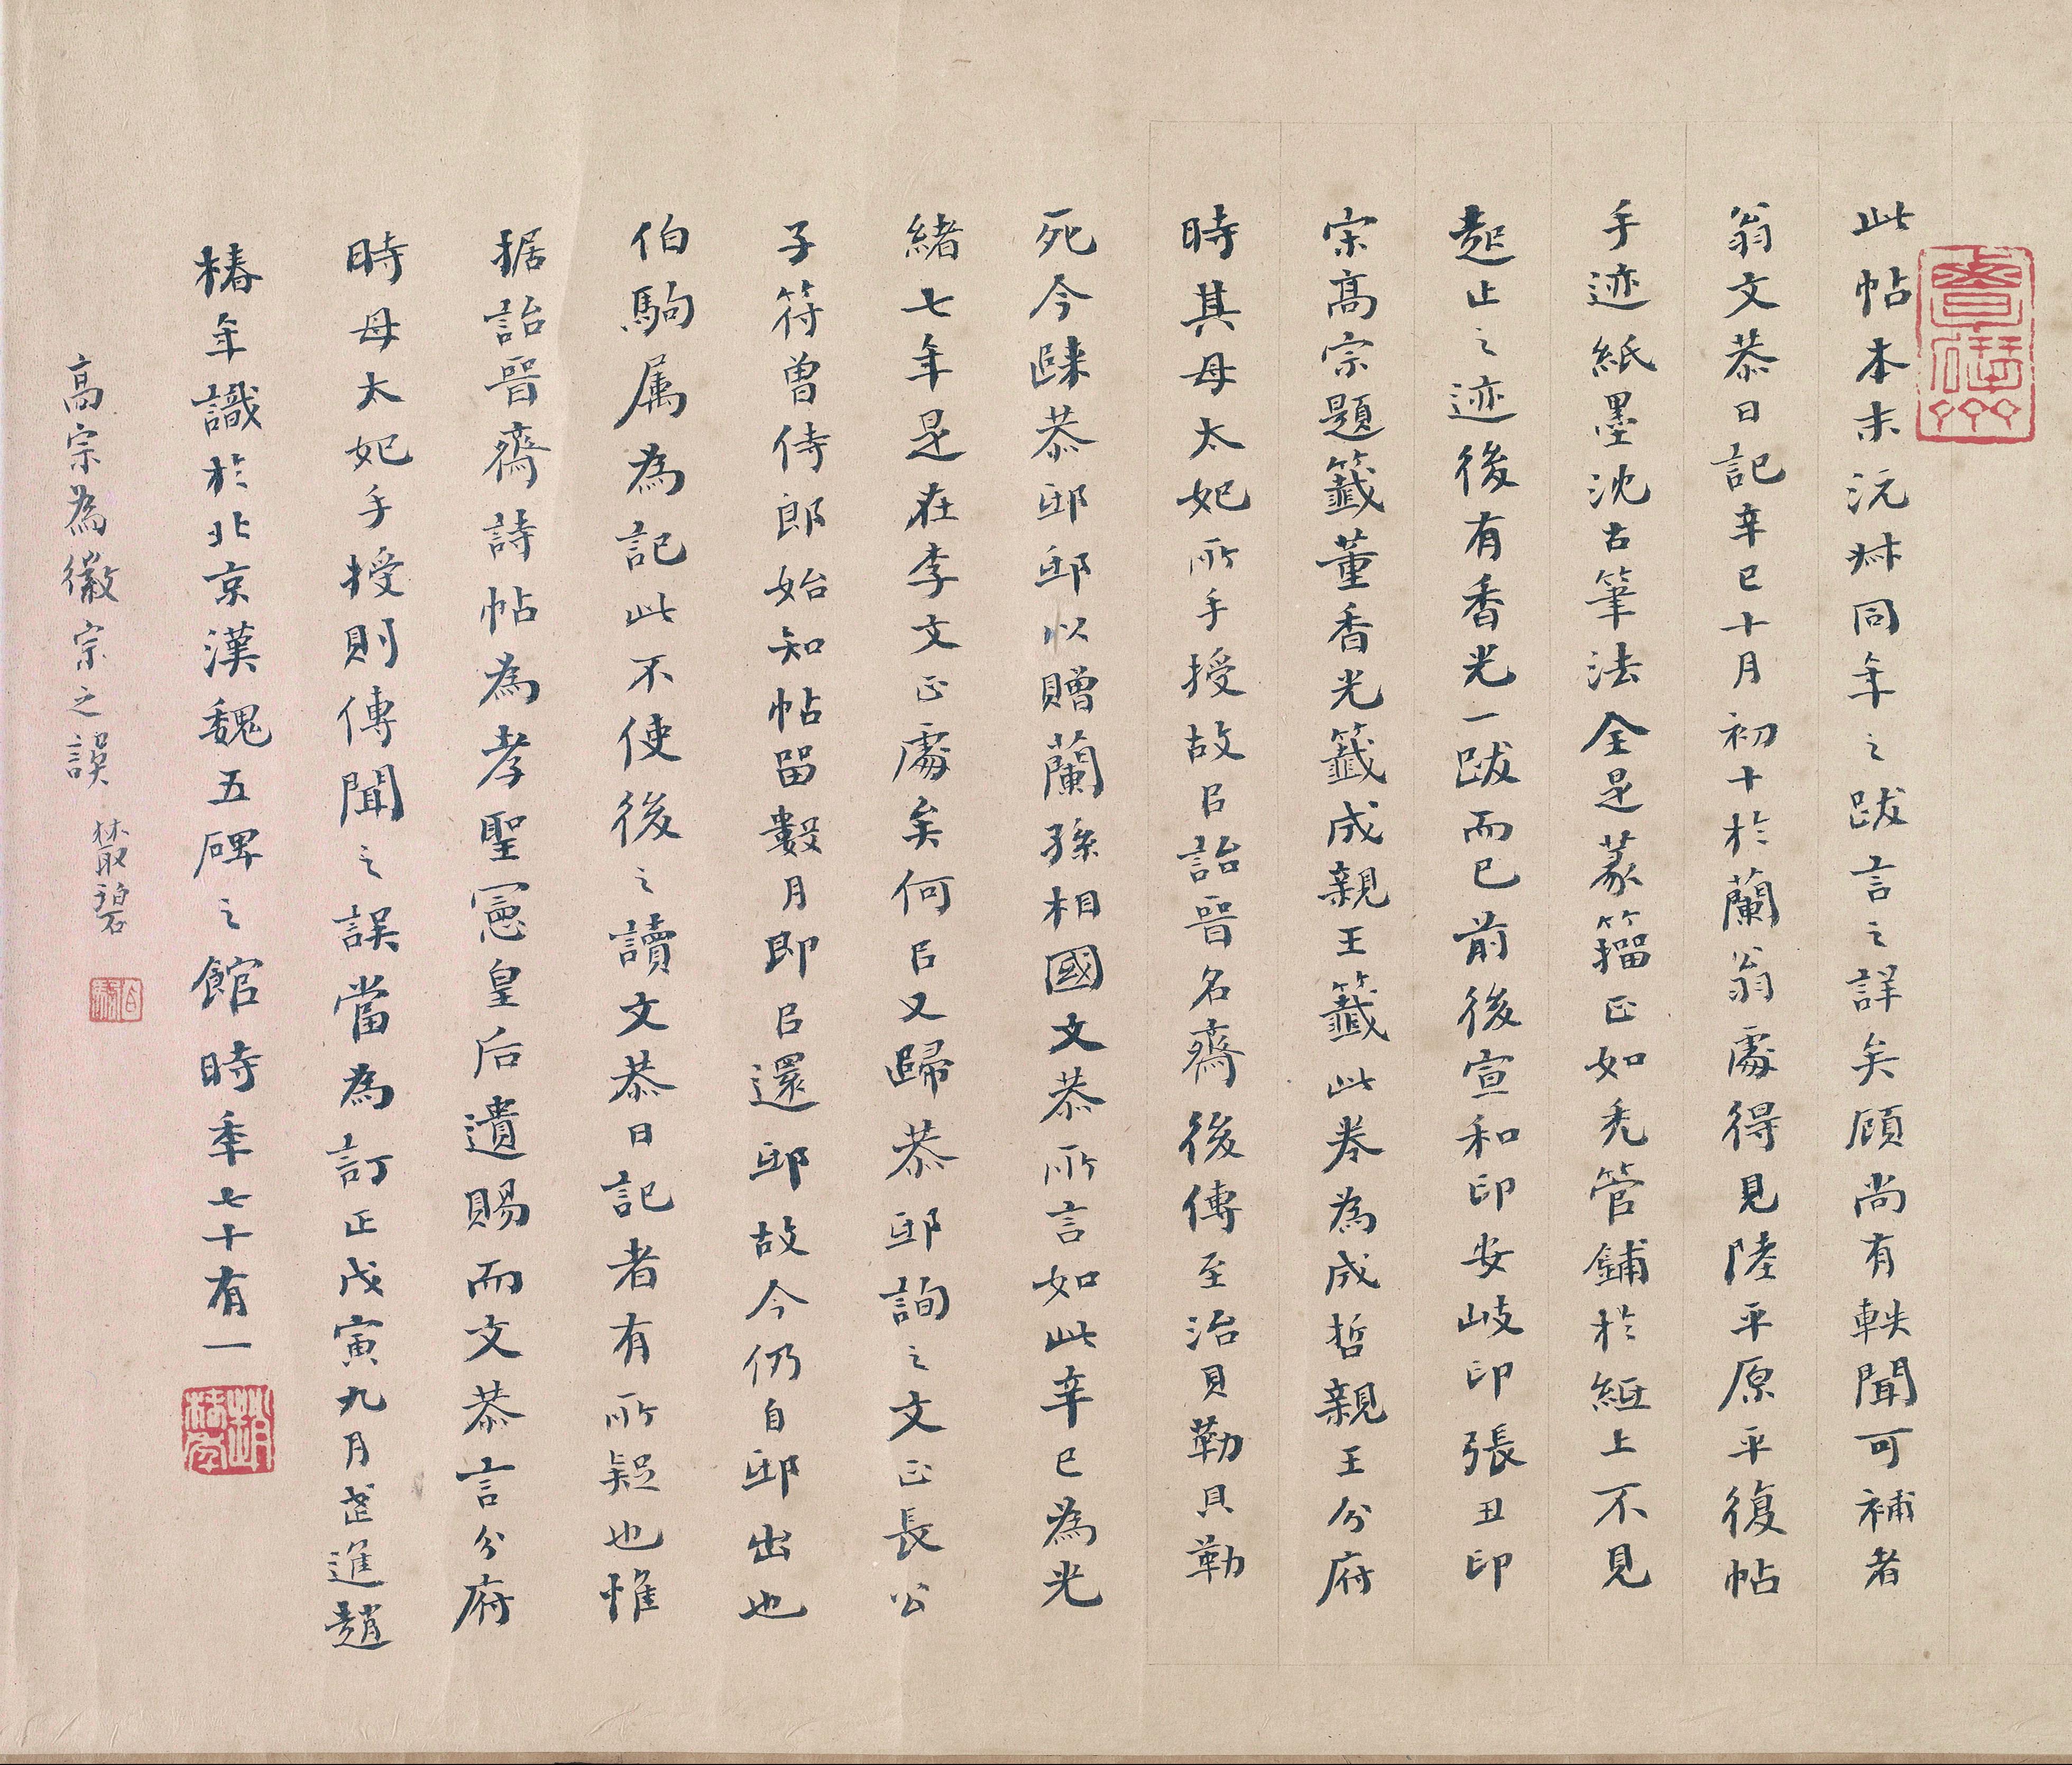 此帖本末沅尗同年之跋言之詳矣顧尚有軼聞可補者
翁文恭日記辛巳十月初十於蘭翁處得見陸平原平復帖
手迹紙墨沈古筆法全是篆籀正如禿管鋪於紙上不見
起止之迹後有香光一跋而已前後宣和印安岐印張丑印
宗高宗題籤董香光籤成親王籤此卷為成哲親王分府
時其母太妃所手授故㠯詒晉名齋後傳至治貝勒貝勒
死今歸恭邸邸以贈蘭孫相國文恭所言如此辛巳為光
緒七年是在李文正處矣何㠯又歸恭邸詢之文正長公
子符曾侍郎始知帖留數月即㠯還邸故今仍自邸出也
伯駒屬為記此不使後之讀文恭日記者有所疑也惟
据詒晉齋詩帖為孝聖憲皇后遺賜而文恭言分府
時母太妃手授則傳聞之誤當為訂正戊寅九月武進趙
椿年識於北京漢魏五碑之館時年七十有一
高宗為徽宗之誤 叢碧
趙椿年